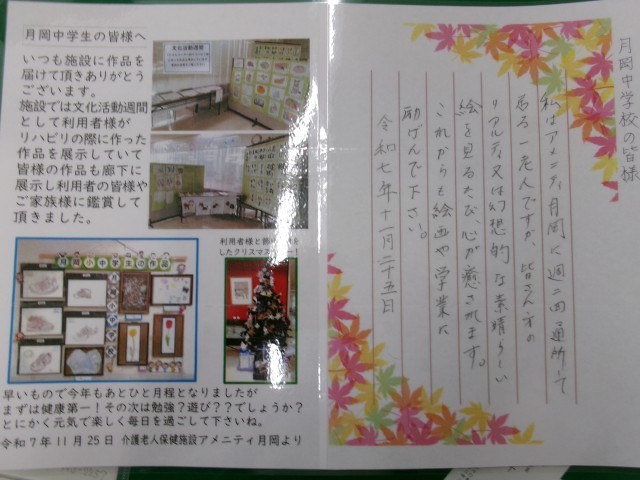 月岡中学生の皆様へ
いつも施設に作品を
届けて頂きありがとう
ございます。
施設では文化活動週間
として利用者様が
リハビリの際に作った
作品を展示していて
皆様の作品も廊下に
展示し利用者の皆様や
ご家族様に鑑賞して
頂きました。
文化活動週間
月岡小中学生の作品
利用者様と飾
をしたクリスマス
早いもので今年もあとひと月程となりましたが
まずは健康第一！その次は勉強？遊び？？でしょうか？
とにかく元気で楽しく毎日を過ごして下さいね。
令和7年11月25日 介護老人保健施設アメニティ月岡より
月岡中学校の皆様
私はアメニティ月岡に週二回通所して
居る一老人ですが、皆さん方の
リアルティ又は幻想的な素晴らしい
絵を見るたび、心が癒されます。
これからも絵画や学業に
励んで下さい。
令和七年十一月二十五日